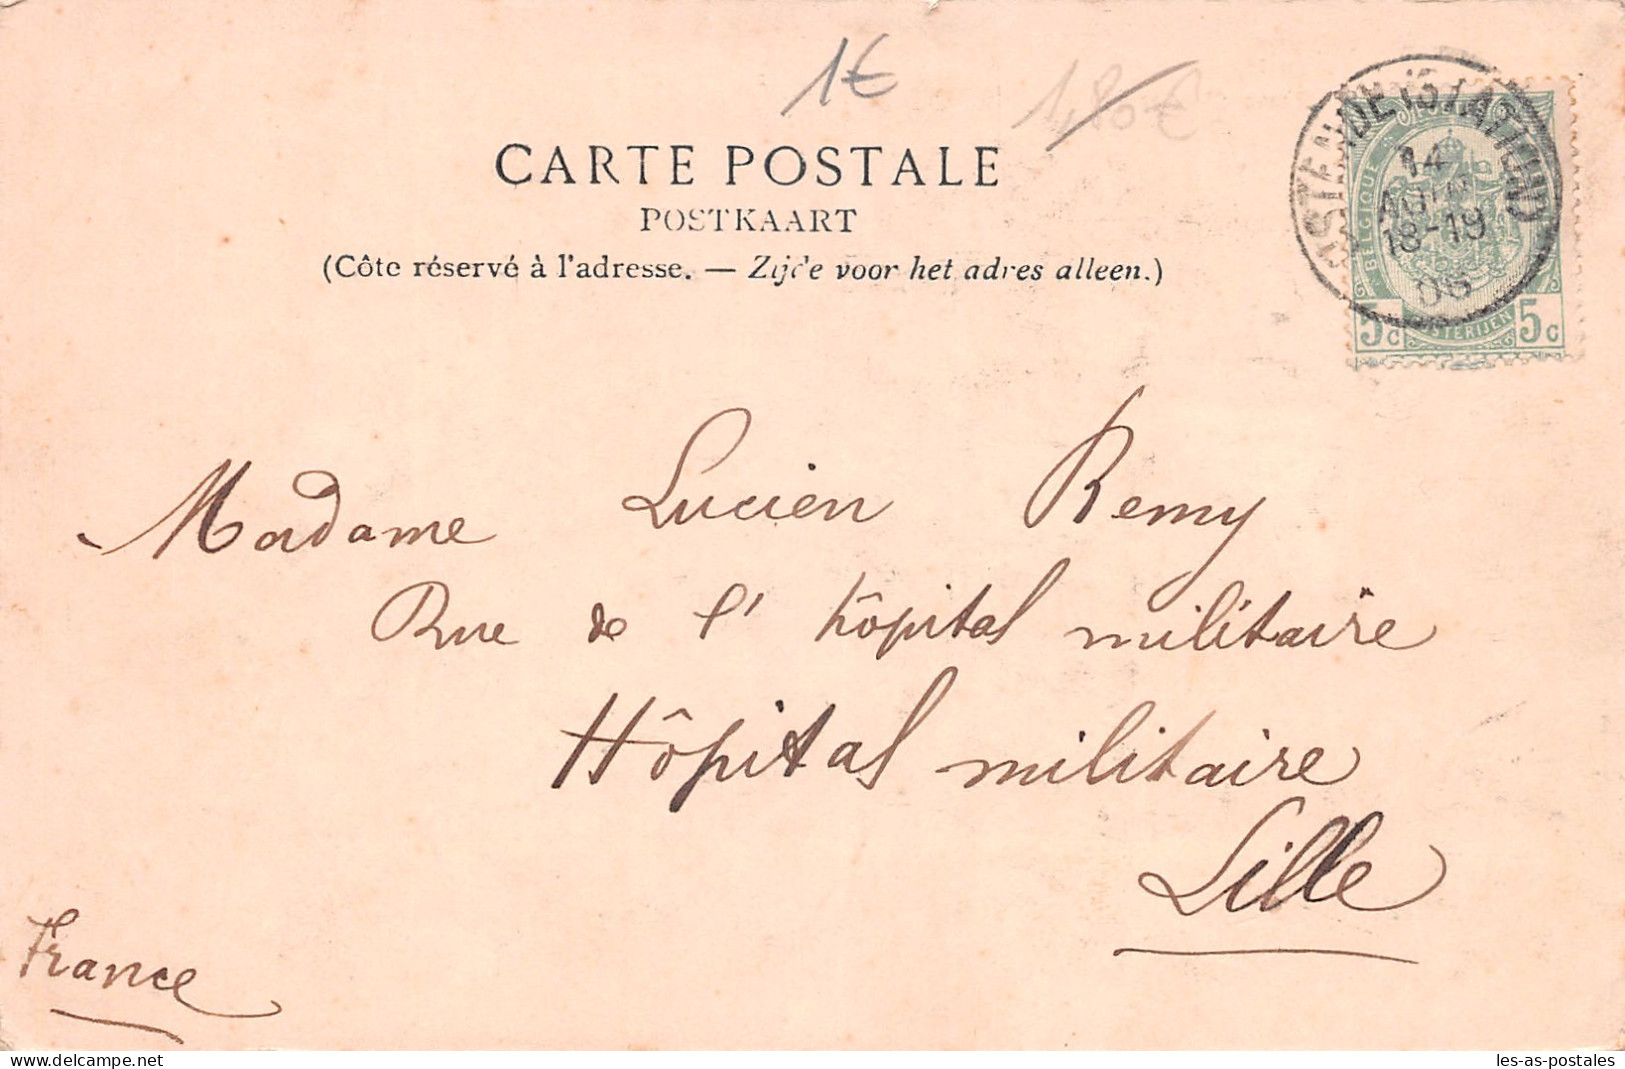 1€
1,80€
CARTE POSTALE
POSTKAART
(Côte réservé à l'adresse. — Zijde voor het adres alleen.)
OSTENDE (STATION)
14
18-19
BELGIQUE
5c 5c
Madame Lucien Remy
Rue de l'hôpital militaire
Hôpital militaire
Lille
France
delcampe.net
les-as-postales